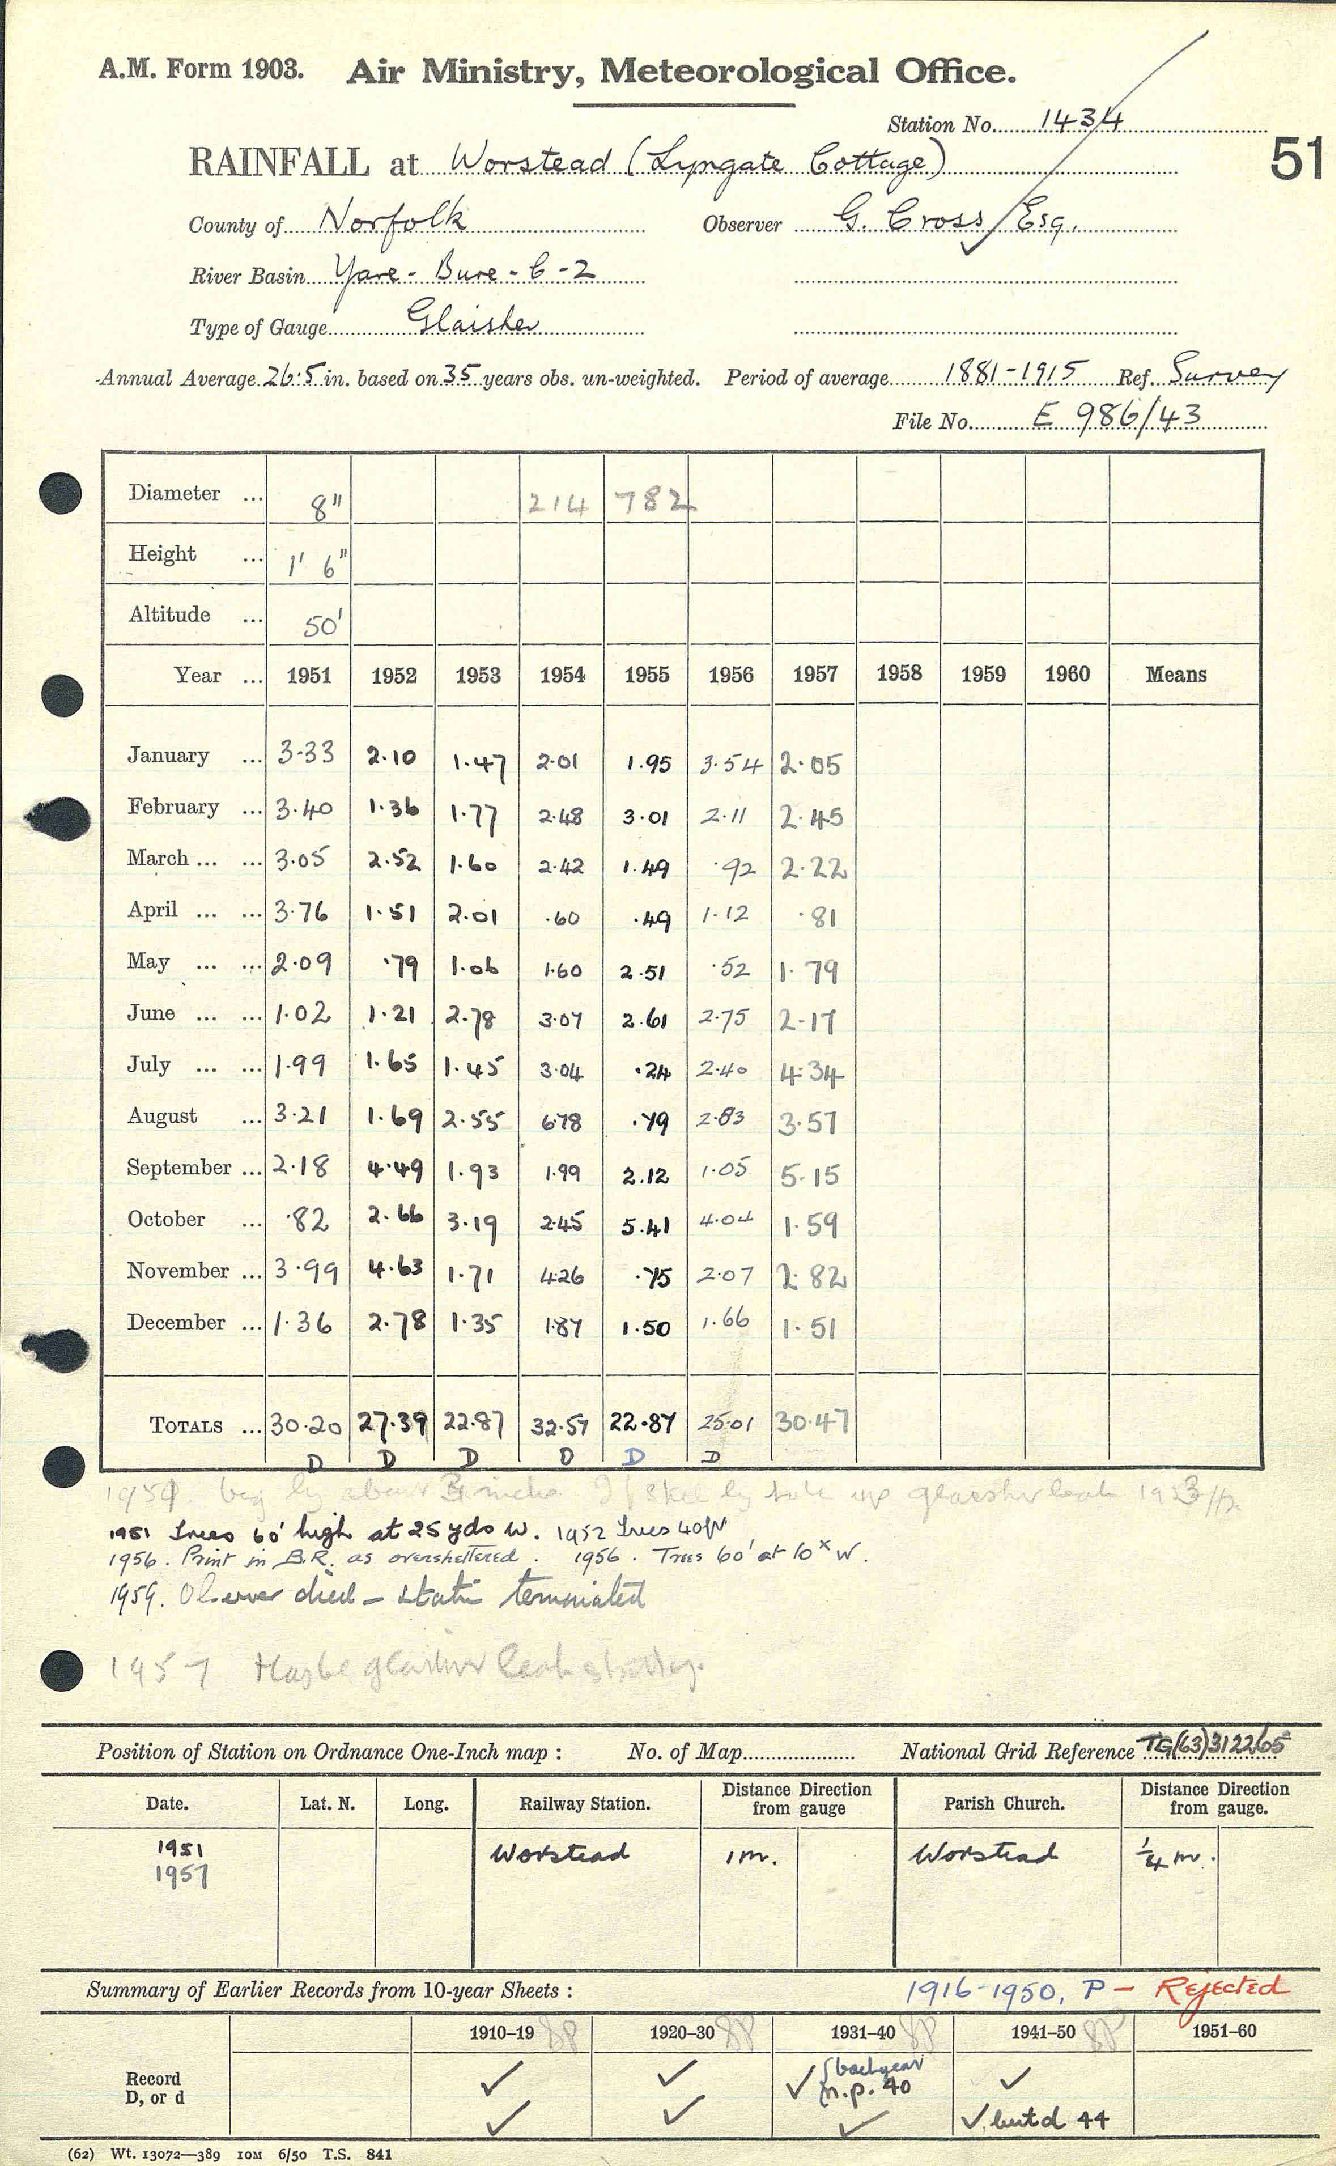 A.M. Form 1903. Air Ministry, Meteorological Office.
Station No. 1434
51
RAINFALL at Worstead (Lyngate Cottage)
County of Norfolk Observer G. Cross Esq.
River Basin Yare - Bure - 6 - 2
Type of Gauge Glaisher
Annual Average 26.5 in. based on 35 years obs. un-weighted. Period of average 1881-1915 Ref. Survey
File No. E 986/43
Diameter ... 8" 214 782
Height ... 1' 6"
Altitude ... 50'
Year ... 1951 1952 1953 1954 1955 1956 1957 1958 1959 1960 Means
January ... 3.33 2.10 1.47 2.01 1.95 3.54 2.05
February ... 3.40 1.36 1.77 2.48 3.01 2.11 2.45
March ... ... 3.05 2.52 1.60 2.42 1.49 .92 2.22
April ... ... 3.76 1.51 2.01 .60 .49 1.12 .81
May ... ... 2.09 .79 1.06 1.60 2.51 .52 1.79
June ... ... 1.02 1.21 2.78 3.07 2.61 2.75 2.17
July ... ... 1.99 1.65 1.45 3.04 .24 2.40 4.34
August ... 3.21 1.69 2.55 6.78 .79 2.83 3.57
September ... 2.18 4.49 1.93 1.99 2.12 1.05 5.15
October ... .82 2.66 3.19 2.45 5.41 4.04 1.59
November ... 3.99 4.63 1.71 4.26 .75 2.07 2.82
December ... 1.36 2.78 1.35 1.87 1.50 1.66 1.51
TOTALS ... 30.20 27.39 22.87 32.57 22.87 25.01 30.47
D D D D D D
1951 Trees 60' high at 25 yds W. 1952 Trees 40ft
1956. Print in B.R. as oversheltered. 1956. Trees 60' at 10x W.
1959. Observer died - station terminated
1957 Maybe glaisher leak
Position of Station on Ordnance One-Inch map : No. of Map National Grid Reference TG(63)312265
Date. Lat. N. Long. Railway Station. Distance Direction from gauge Parish Church. Distance Direction from gauge.
1951 Worstead 1 m. Worstead 1/4 m.
1957
Summary of Earlier Records from 10-year Sheets : 1916-1950, P - Rejected
1910-19 1920-30 1931-40 1941-50 1951-60
Record ✓ ✓ ✓ n.p. 40 ✓
D, or d ✓ ✓ ✓ ✓ but d 44
(62) Wt. 13072—389 10M 6/50 T.S. 841